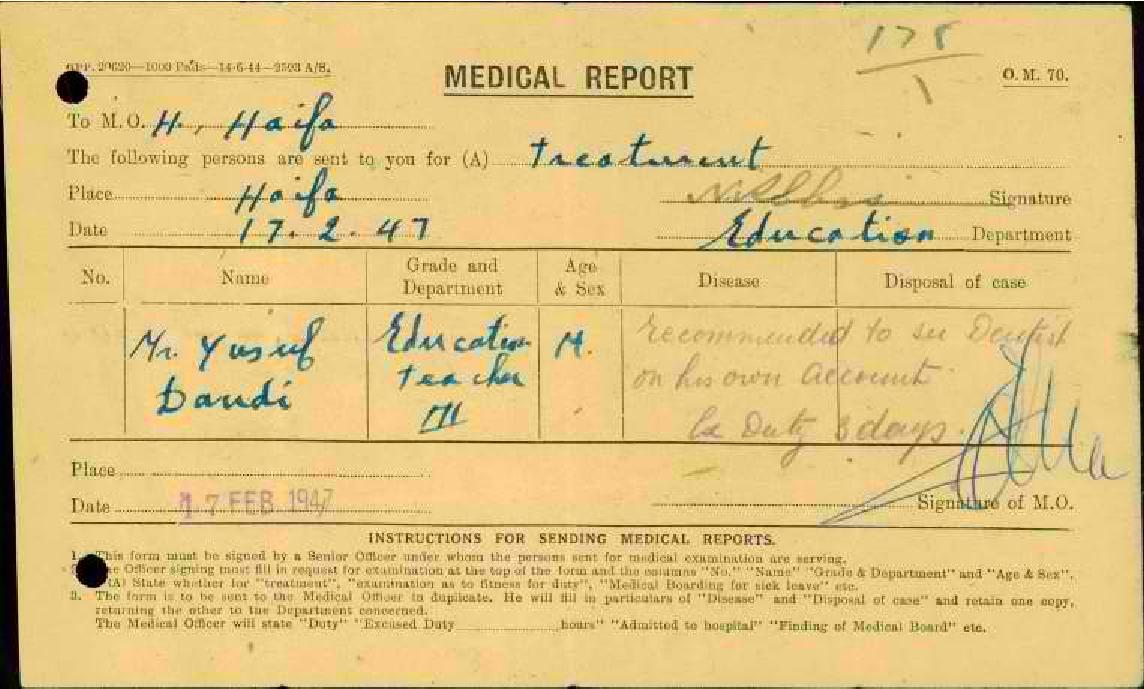 GPP. 20620—1000 Pads—14-6-44—2593 A/S.
178
1
MEDICAL REPORT
O. M. 70.
To M.O. H., Haifa
The following persons are sent to you for (A) treatment
Place Haifa
Signature
Date 17.2.47 Education Department
No. Name Grade and Department Age & Sex Disease Disposal of case
Mr. Yusuf Education M. Recommended to see Dentist
Daudi teacher on his own account
III Ex Duty 3 days.
Place
Date 17 FEB 1947 Signature of M.O.
INSTRUCTIONS FOR SENDING MEDICAL REPORTS.
1. This form must be signed by a Senior Officer under whom the persons sent for medical examination are serving.
Officer signing must fill in request for examination at the top of the form and the columns "No." "Name" "Grade & Department" and "Age & Sex".
(A) State whether for "treatment", "examination as to fitness for duty", "Medical Boarding for sick leave" etc.
3. The form is to be sent to the Medical Officer in duplicate. He will fill in particulars of "Disease" and "Disposal of case" and retain one copy,
returning the other to the Department concerned.
The Medical Officer will state "Duty" "Excused Duty hours" "Admitted to hospital" "Finding of Medical Board" etc.